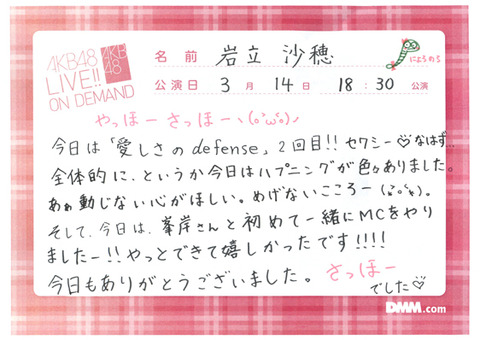 AKB48
LIVE!!
ON DEMAND
AKB
48
名前 岩立 沙穂
にょろにょろ
公演日 3月 14日 18:30 公演
やっほー さっほー、(o'ω'o)ノ
今日は「愛しさのdefense」2回目!! セクシー♡なはず…
全体的に、というか今日はハプニングが色々ありました。
あぁ動じない心がほしい。めげないこころー
そして、今日は、峯岸さんと初めて一緒にMCをやり
ましたー!! やっとできて嬉しかったです!!!!
今日もありがとうございました。 さっほー
でした♡
DMM.com